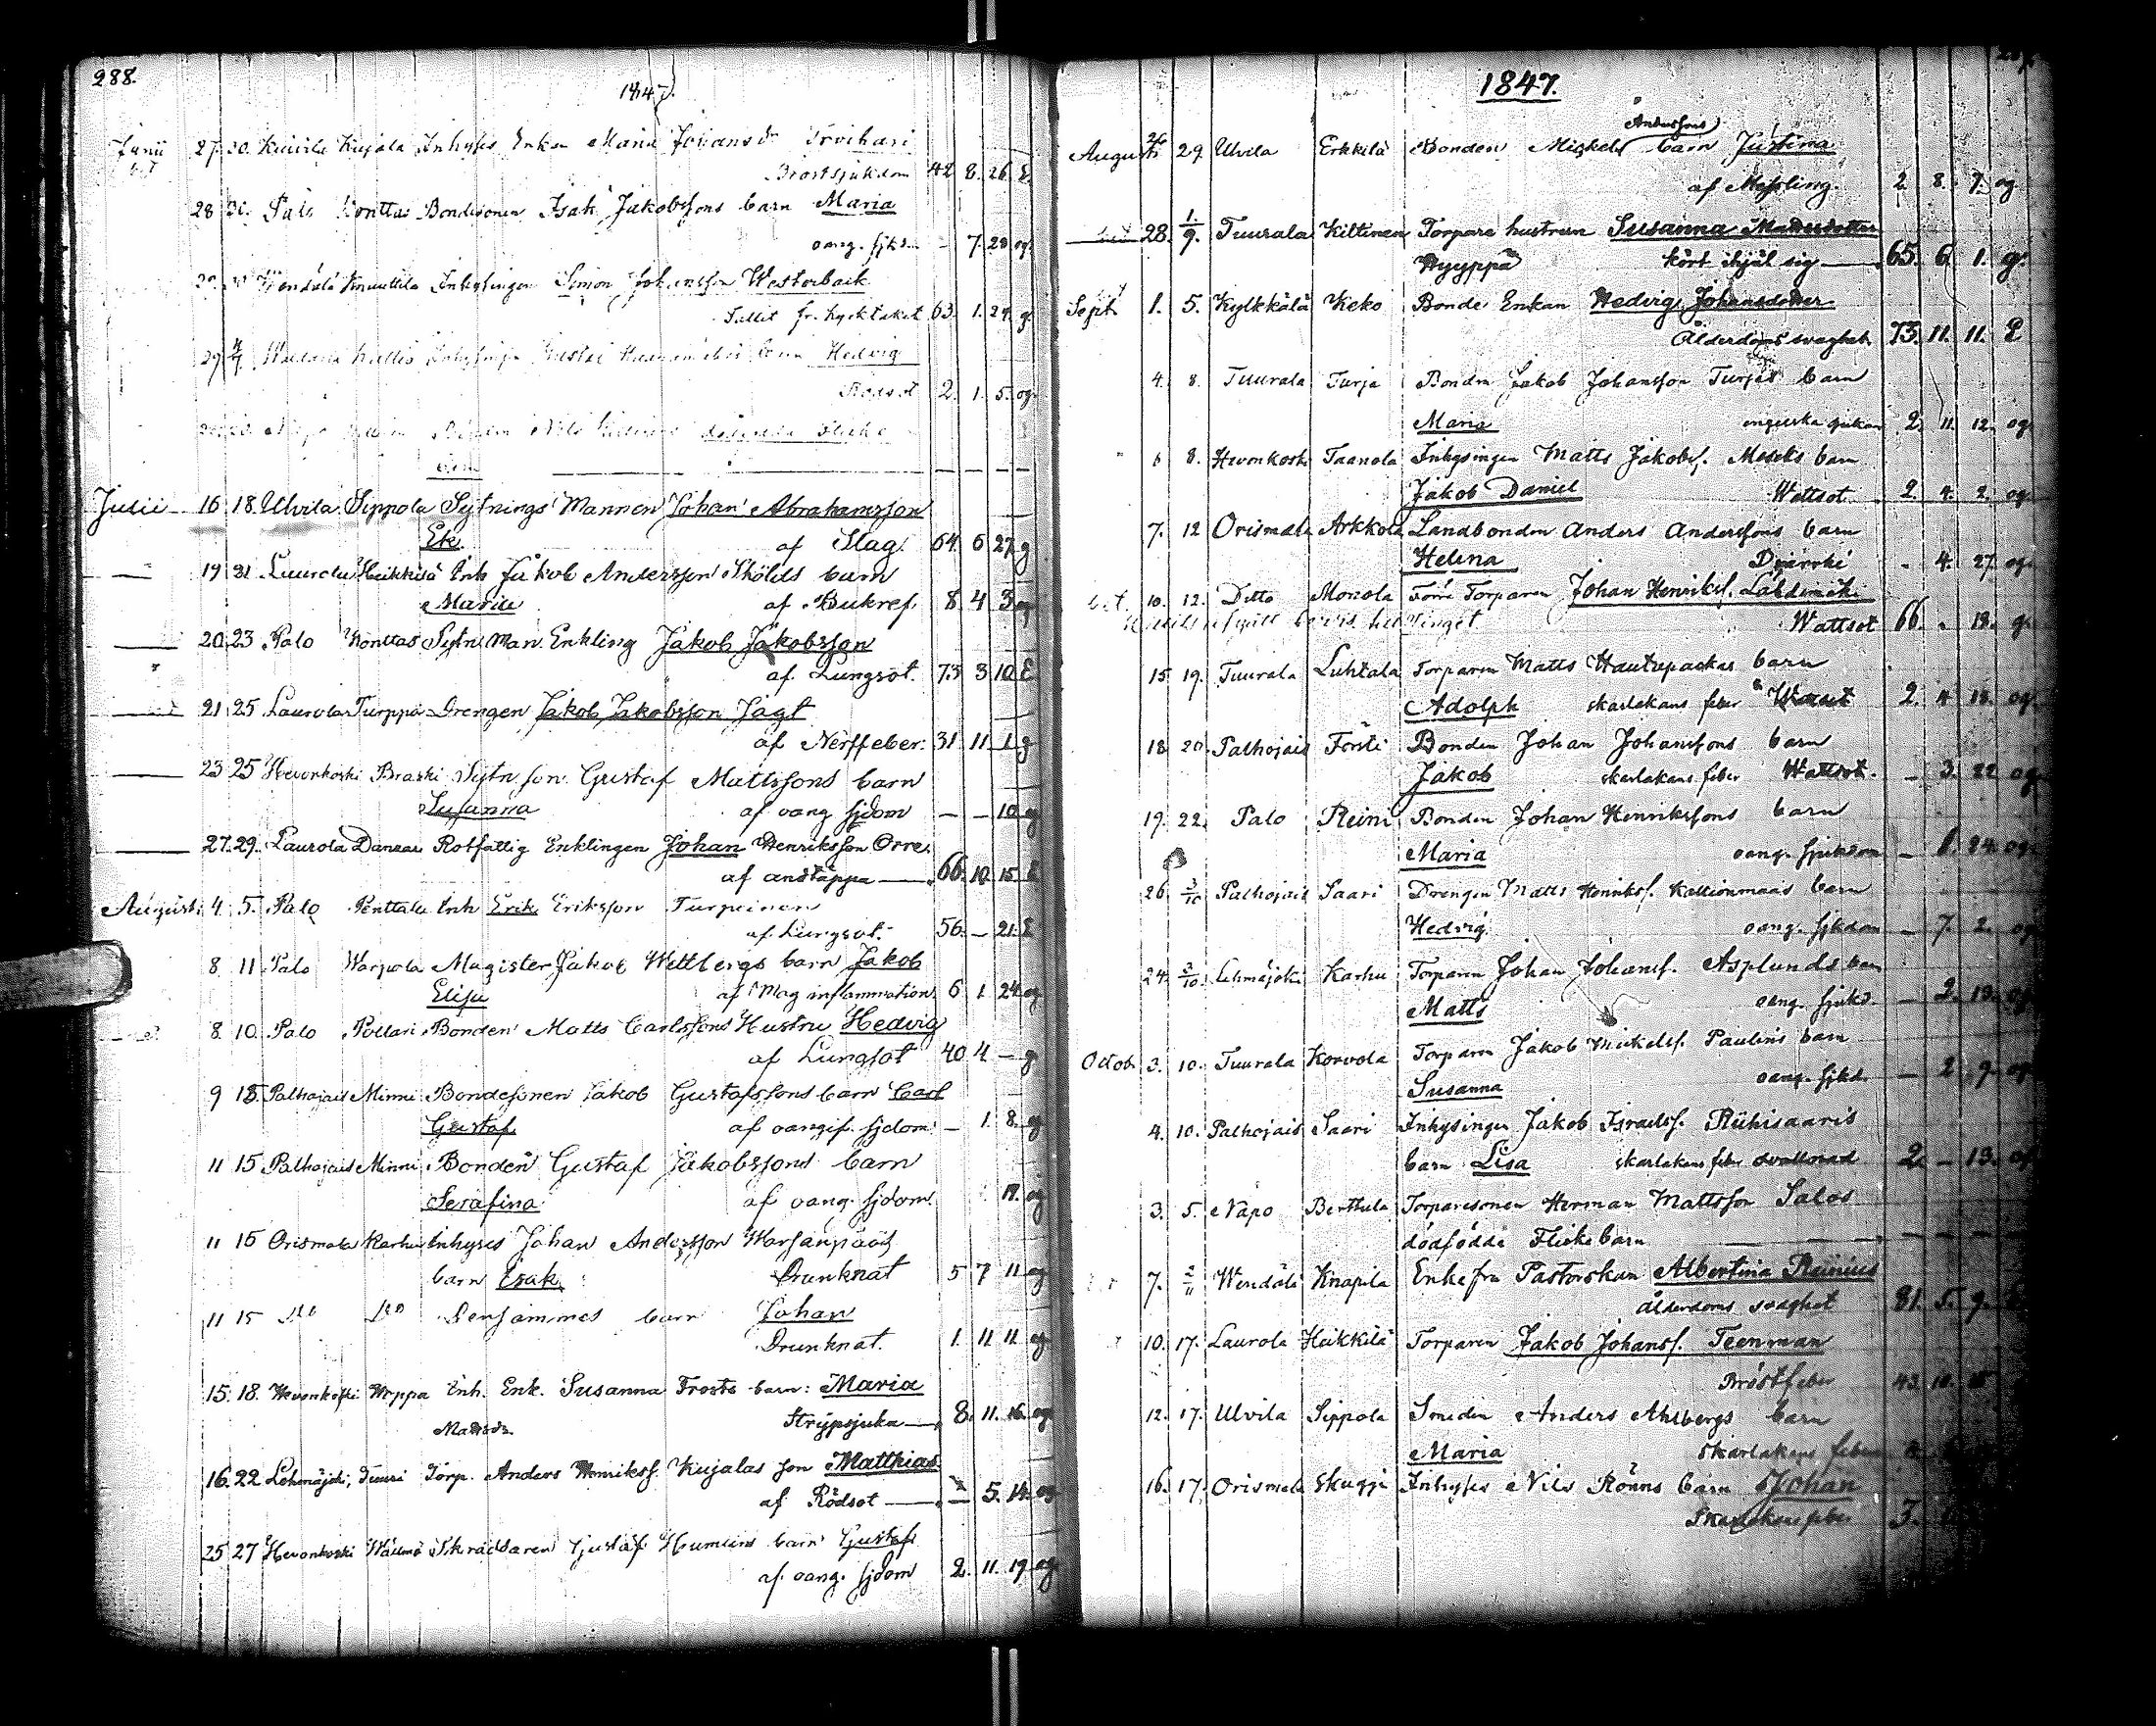 288.
1847.
Junii 27. 30. Kujala Inhyses Enkan Maria Johansdr
Bröstsjukdom 42 8. 26 E.
28 30. Palo Konttas Bondesonen Isak Jakobssons barn Maria
oang. sjkd. - 7. 28 og.
Knuuttila Inhysingen Simon Johansson Westerback
63. 1. 24. g.
29 barn Hedvig
Rödsot 2. 1. 5. og.
barn — — — —
Julii 16 18. Ulvila Sippola Sytnings Mannen Johan Abrahamsson
Ek af Slag. 64. 6 27. g
19 21. Laurola Heikkilä Inh Jakob Andersson Skölds barn
Maria af Bukref. 8 4 3 og
20. 23 Palo Konttas Sytn. Man. Enkling Jakob Jakobsson
af Lungsot. 73 3 10 E
21 25 Laurola Turppa Drengen Jakob Jakobsson Jägt
af Nerffeber. 31 11 1 g
23 25 Hevonkoski Braski Sytn. son. Gustaf Mattssons barn
Susanna af oang sjdom — — 10 og
27. 29. Laurola Danzar Rotfattig Enklingen Johan Henriksson Orre.
af andtäppa — 66. 10 15 E
Augusti 4. 5. Palo Penttala Inh Erik Eriksson Turpeinen
af Lungsot. 56. — 21. E
8 11. Palo Warpola Magister Jakob Wettbergs barn Jakob
Elise af Mag inflammation 6 1 24 og
8. 10. Palo Pollari Bonden Matts Carlssons Hustru Hedvig
af Lungsot 40 4 — g
9 15. Palhojais Minni Bondesonen Jakob Gustafssons barn Carl
Gustaf af oangif. sjdom. — 1. 8. og
11 15 Palhojais Minni Bonden Gustaf Jakobssons barn
Serafina af oang. sjdom. 17. og
11 15 Orismala Karhu Inhyses Johan Andersson Warsanpääs
barn Esak Drunknat 5 7 11 og
11 15 Do Do Densammes barn Johan
Drunknat. 1. 11 11 og
15. 18. Hevonkoski Woppa Inh. Enk. Susanna Frosts barn: Maria
Mattsdr. Strypsjuka — 8. 11. 16. og
16. 22 Lehmäjoki, Tuuri Torp. Anders Henrikss. Kujalas son Matthias
af Rödsot — 5. 14. og
25 27 Hevonkoski Wälimä Skräddaren Gustaf Humlins barn Gustaf
af oang. sjdom 2. 11. 19 og
1847.
Anderssons
Augusti 26 29 Ulvila Erkkilä Bonden Mickels barn Justina
af Messling. 2. 8. 7. og
28. 1./9. Tuurala Kiltinen Torpare hustrun Susanna Mattsdotter
Hyyppä kört ihjäl sig — 65. 6 1. g.
Sept. 1. 5. Kylkkälä Keko Bonde Enkan Hedvig Johansdotter
Ålderdoms svaghet. 73. 11. 11. E
4. 8. Tuurala Turja Bonden Jakob Johansson Turjas barn
Maria engelska sjukan 2. 11. 12. og
6 8. Hevonkoski Taanola Inhysingen Matts Jakobs. barn
Jakob Daniel Wattsot. 2. 4. 2. og
7. 12 Orismala Arkkola Landbonden Anders Anderssons barn
Helena Diarrhé - 4. 27. og
10. 12. Ditto Monola Förre Torparen Johan Henrikss. Lähdemäki
Wattsot 66. - 18. g.
15. 19. Tuurala Luhtala Torparen Matts Hautapaakas barn
Adolph skarlakans feber & Wattsot 2. 4 18. og.
18 20. Palhojais Försti Bonden Johan Johanssons barn
Jakob skarlakans feber Wattsot. — 3. 22 og
19. 22. Palo Reini Bonden Johan Henrikssons barn
Maria oang. sjukdom — 1. 24. og
26. 3/10 Palhojais Saari Drengen Matts Henrikss. Kallionmaas barn
Hedvig oang. sjkdom — 7. 2. og
24. 3/10. Lehmäjoki Karhu Torparen Johan Johanss. Asplunds barn
Matts oang. sjukd. — 2. 13. og
Octob. 3. 10. Tuurala Korvola Torparen Jakob Mickelss. Paulins barn
Susanna oang. sjkd. — 2. 9. og
4. 10. Palhojais Saari Inhysingen Jakob Israelss. Riihisaaris
barn Lisa skarlakans feber 2. — 13. og
3. 5. Napo Berttula Torparesonen Herman Mattsson Salos
dödfödda Flickebarn — — — —
7. 2/11 Wendälä Knapila Enkefru Pastorskan Albertina Reinius
ålderdoms svaghet 81. 5. 9.
10. 17. Laurola Heikkilä Torparen Jakob Johanss. Teenman
Bröstfeber 43. 10. 15
12. 17. Ulvila Sippola Smeden Anders Ahlbergs barn
Maria Skarlakans feber
16. 17. Orismala Skuggi Inhyses Nils Rönns barn Johan
Skarlakansfeber 3.